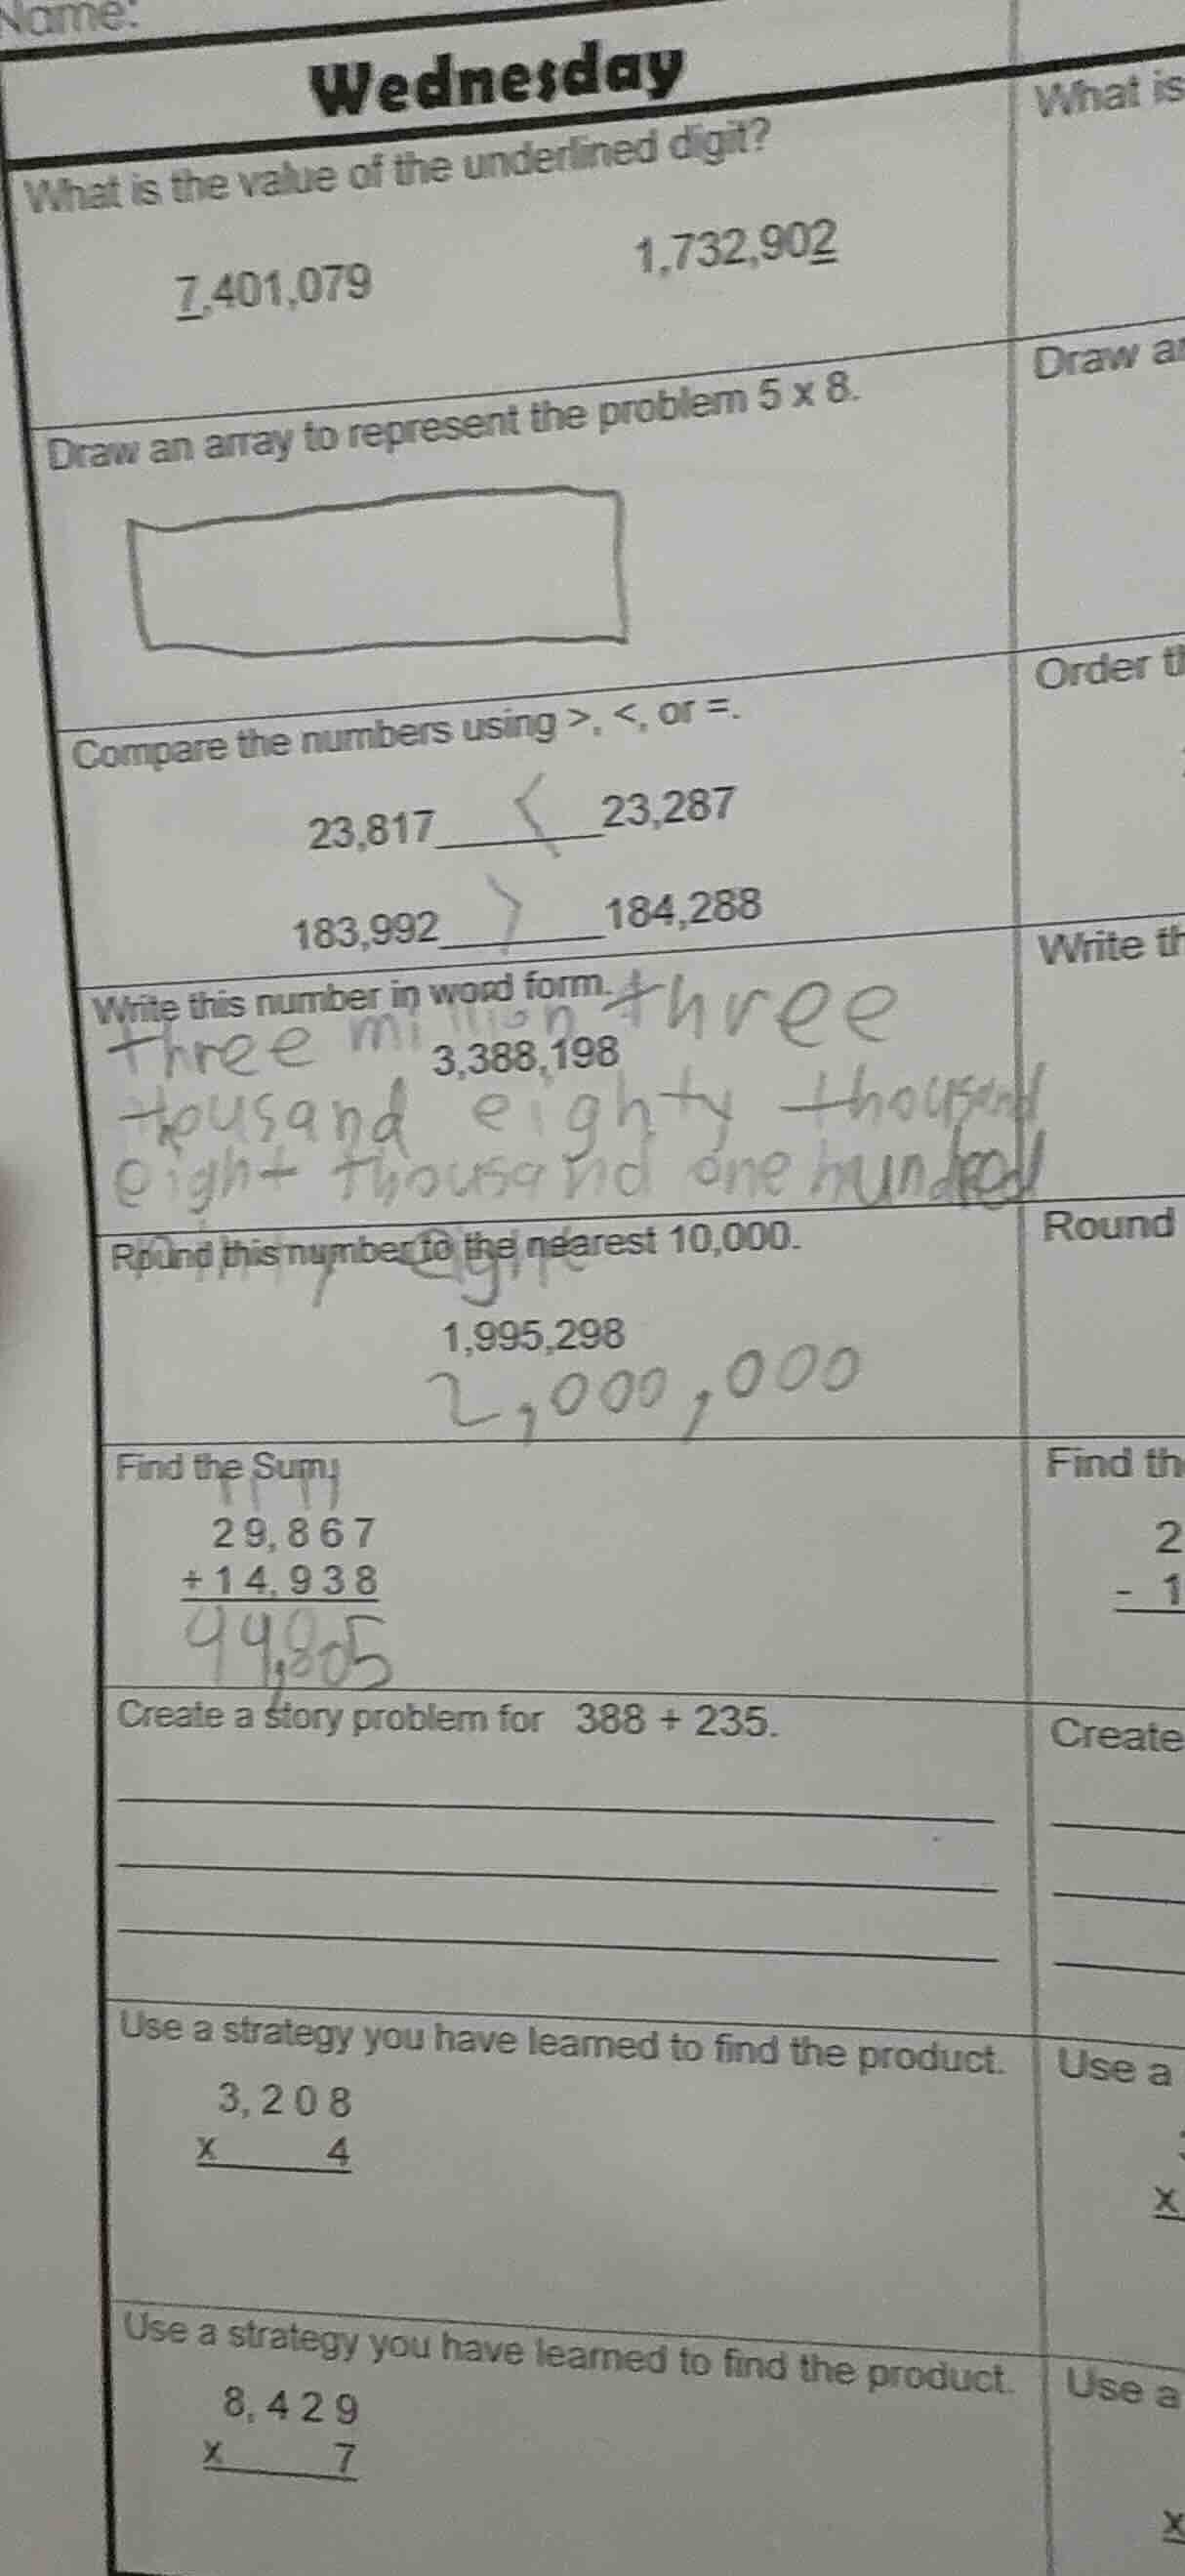 Name:
Wednesday
What is the value of the underlined digit?
7,401,079 1,732,902
Draw an array to represent the problem 5 x 8.
Compare the numbers using >, <, or =.
23,817 < 23,287
183,992 > 184,288
Write this number in word form.
three million three
3,388,198
thousand eighty thousand
eight thousand one hundred
eight
Round this number to the nearest 10,000.
1,995,298
2,000,000
Find the Sum.
29,867
+14,938
44,805
Create a story problem for 388 + 235.
Use a strategy you have learned to find the product.
3,208
x 4
Use a strategy you have learned to find the product.
8,429
x 7
What is
Draw
Order
Write
Round
Find
2
- 1
Create
Use a
x
Use a
x